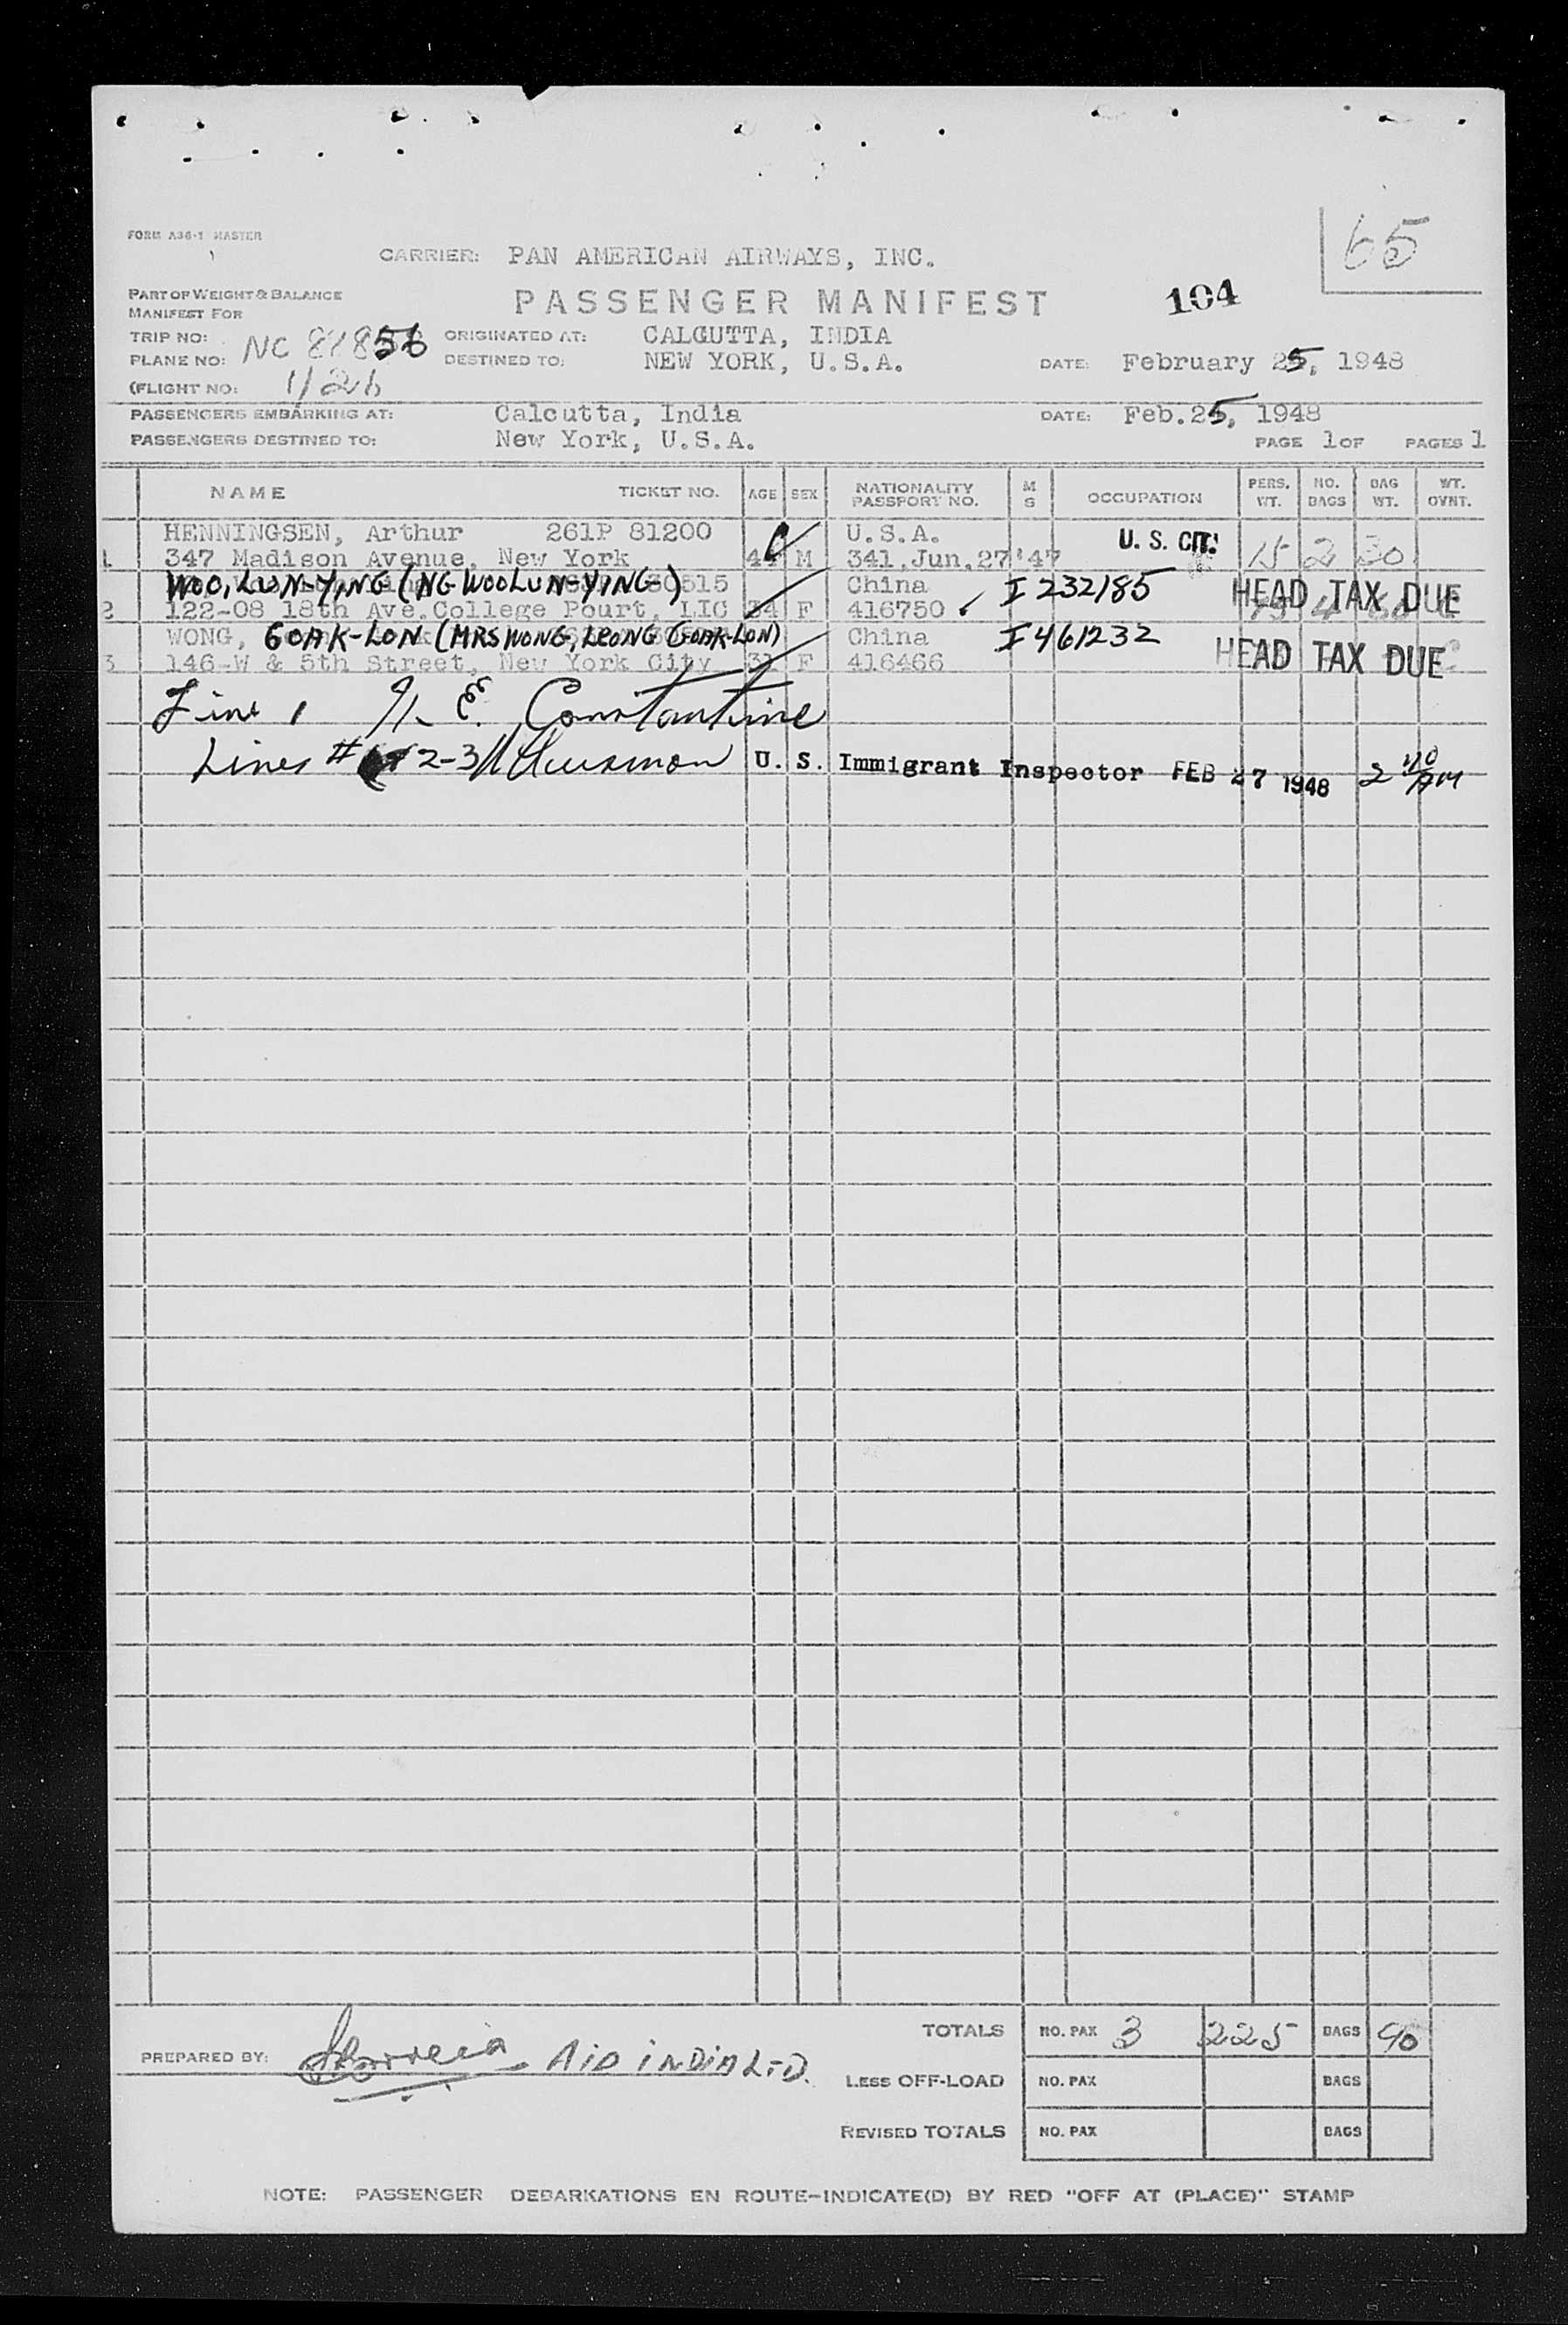 FORM A36-1 MASTER
65
CARRIER: PAN AMERICAN AIRWAYS, INC.
PART OF WEIGHT & BALANCE
MANIFEST FOR
PASSENGER MANIFEST
104
TRIP NO:
ORIGINATED AT: CALCUTTA, INDIA
PLANE NO: NC 88856
DESTINED TO: NEW YORK, U.S.A.
DATE: February 25, 1948
(FLIGHT NO: 1/26
PASSENGERS EMBARKING AT: Calcutta, India
DATE: Feb. 25, 1948
PASSENGERS DESTINED TO: New York, U.S.A.
PAGE 1 OF PAGES 1
NAME TICKET NO. AGE SEX NATIONALITY PASSPORT NO. M S OCCUPATION PERS. WT. NO. BAGS BAG WT. WT. OVNT.
HENNINGSEN, Arthur 261P 81200 U.S.A. U. S. CIT.
1 347 Madison Avenue, New York 44 M 341, Jun, 27 '47 15 2 30
WOO, LUN-YING (NG WOO LUN-YING) China I 232185 HEAD TAX DUE
2 122-08 18th Ave. College Pourt, LIC 34 F 416750 ✓
WONG, GOAK-LON (MRS WONG, LEONG GOAK-LON) China I 461232 HEAD TAX DUE
3 146-W & 5th Street, New York City 31 F 416466
Line 1 E. Constantine
Lines # 2-3 U. S. Immigrant Inspector FEB 27 1948 2 40 AM
TOTALS NO. PAX 3 225 BAGS 90
PREPARED BY: Correia AID INDIA LTD.
LESS OFF-LOAD NO. PAX BAGS
REVISED TOTALS NO. PAX BAGS
NOTE: PASSENGER DEBARKATIONS EN ROUTE-INDICATE(D) BY RED "OFF AT (PLACE)" STAMP